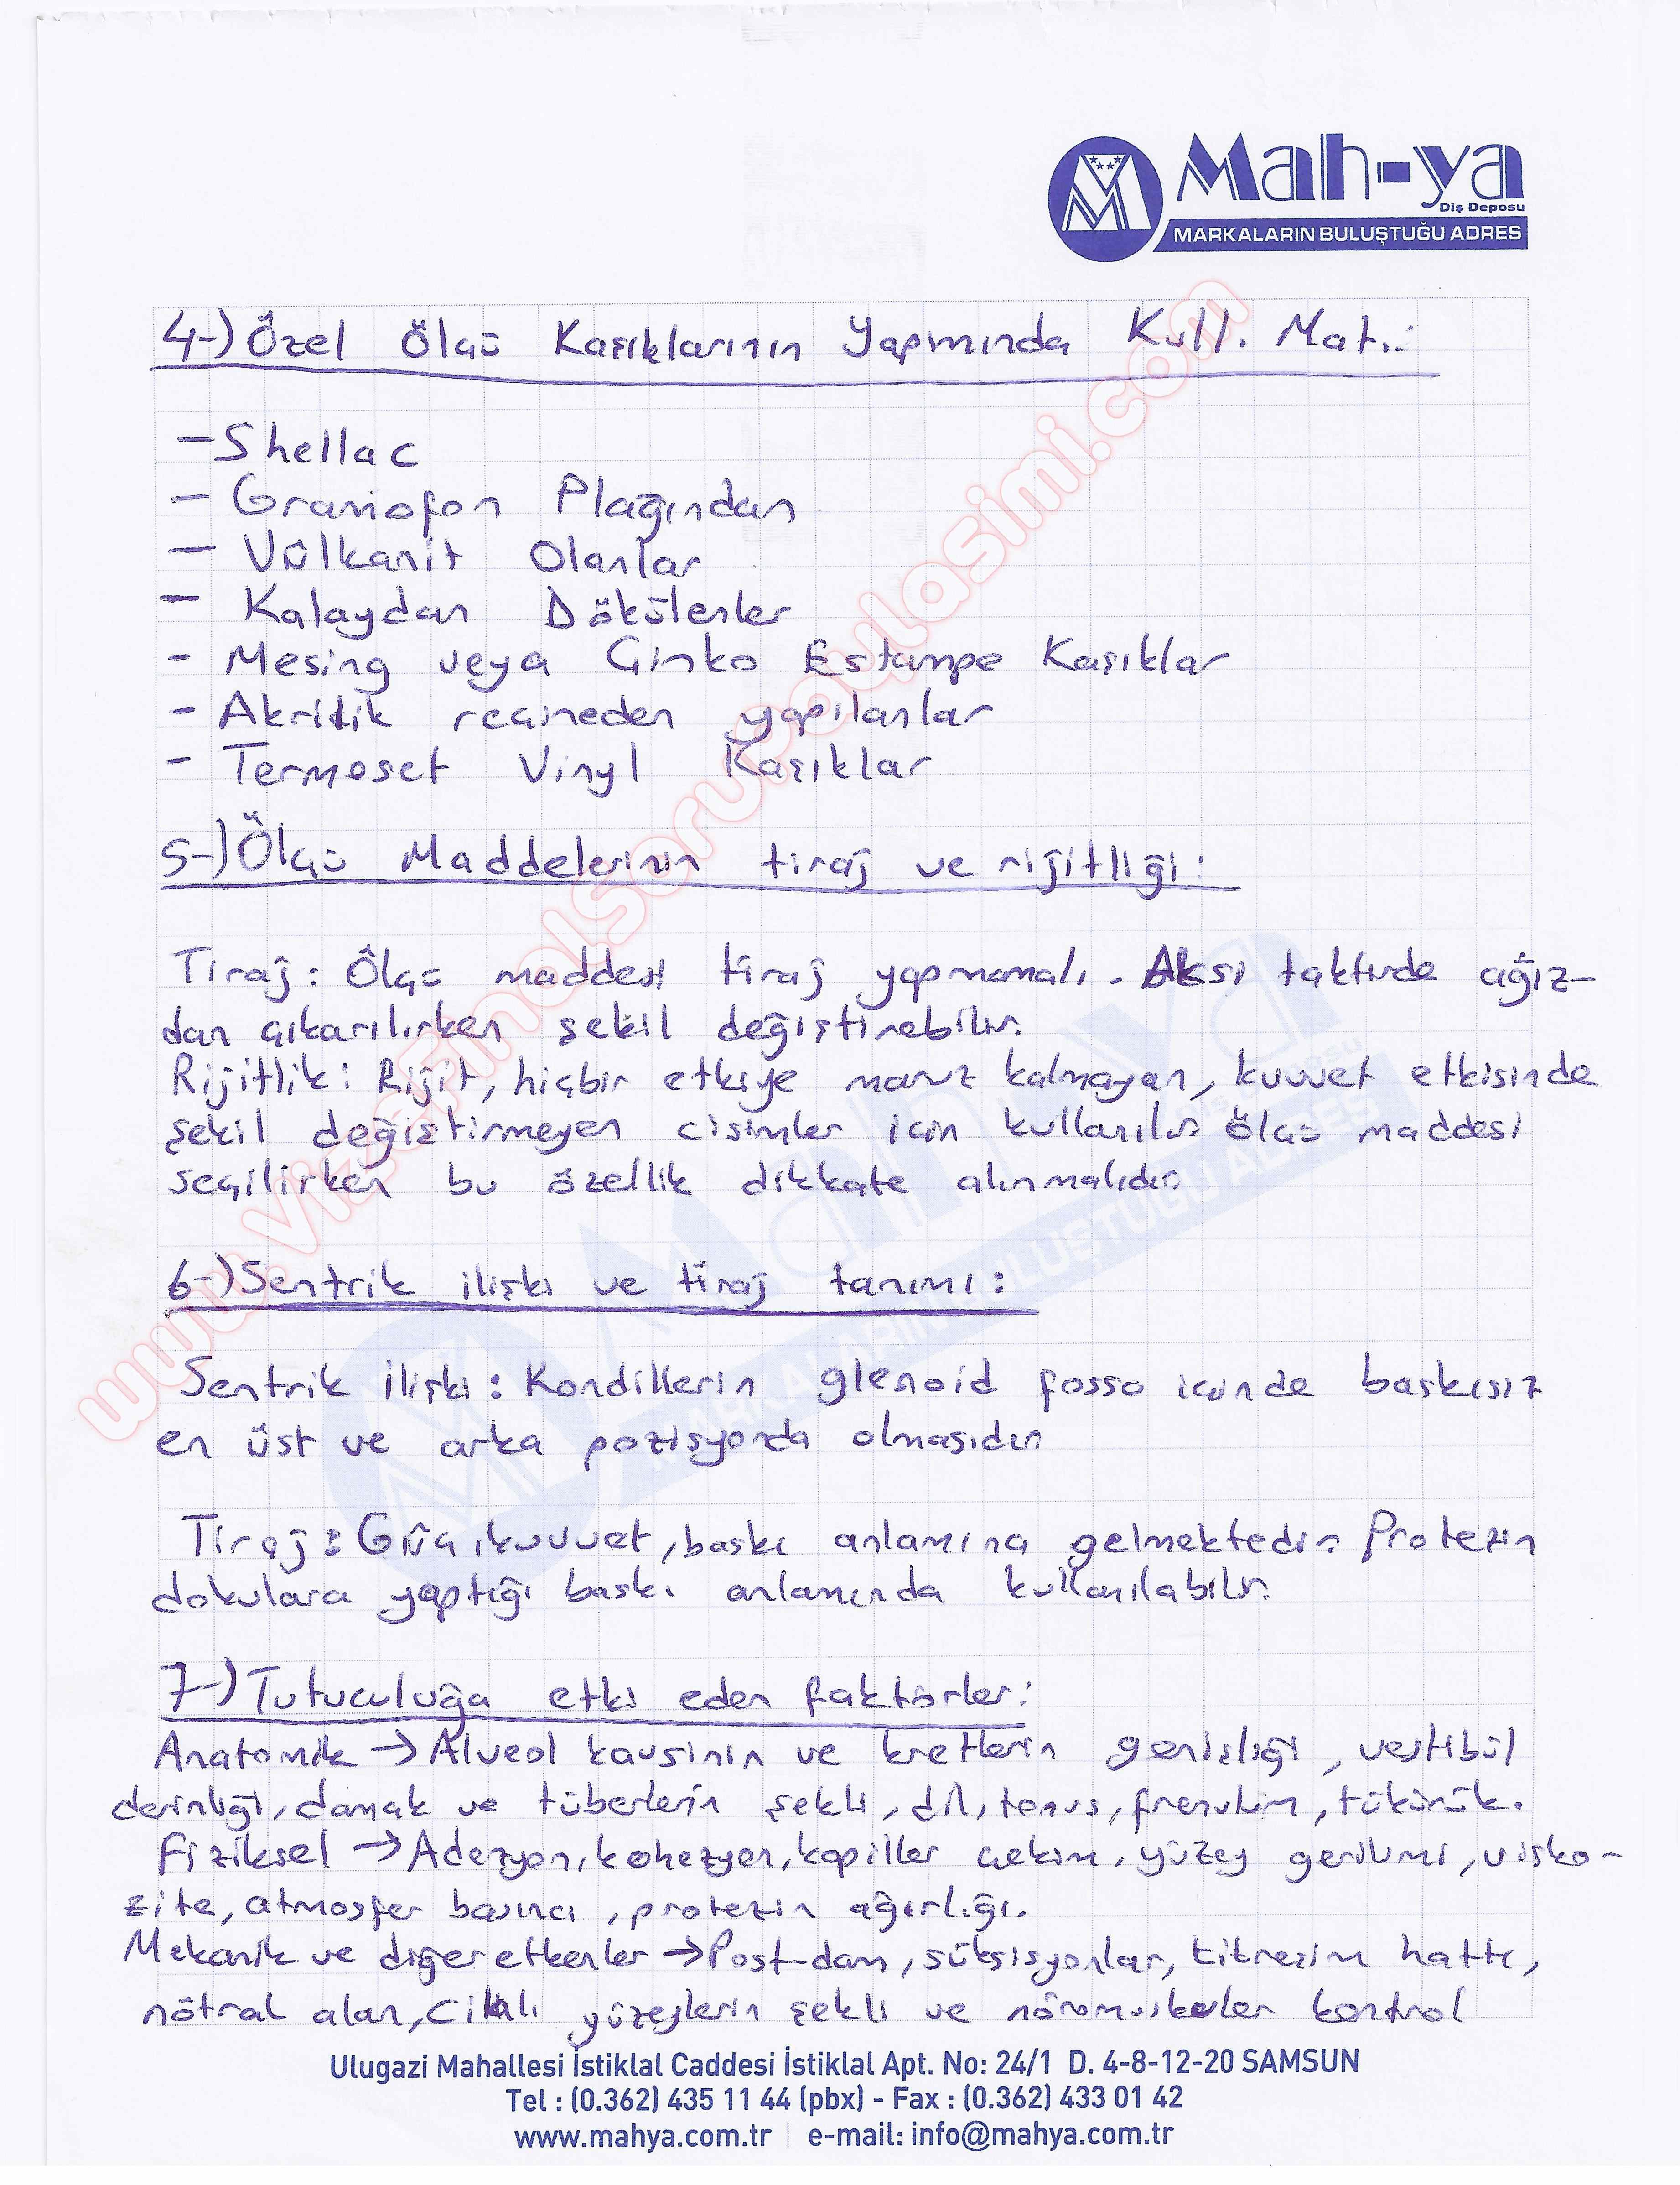 Mah-ya
Diş Deposu
MARKALARIN BULUŞTUĞU ADRES
4-) Özel Ölçü Kaşıklarının Yapımında Kull. Mat.:
- Shellac
- Gramofon Plağından
- Vülkanit Olanlar
- Kalaydan Dökülenler
- Mesing veya Çinko Estampe Kaşıklar
- Akrilik reçineden yapılanlar
- Termoset Vinyl Kaşıklar
5-) Ölçü Maddelerinin tiraj ve rijitliği:
Tiraj: Ölçü maddesi tiraj yapmamalı. Aksi taktirde ağız-
dan çıkarılırken şekil değiştirebilir.
Rijitlik: Rijit, hiçbir etkiye maruz kalmayan, kuvvet etkisinde
şekil değiştirmeyen cisimler için kullanılır. Ölçü maddesi
seçilirken bu özellik dikkate alınmalıdır.
6-) Sentrik ilişki ve tiraj tanımı:
Sentrik ilişki: Kondillerin glenoid fossa içinde baskısız
en üst ve arka pozisyonda olmasıdır.
Tiraj: Güç, kuvvet, baskı anlamına gelmektedir. Protezin
dokulara yaptığı baskı anlamında kullanılabilir.
7-) Tutuculuğa etki eden faktörler:
Anatomik → Alveol kavsinin ve kretlerin genişliği, vestibül
derinliği, damak ve tüberlerin şekli, dil, tonus, frenulum, tükürük.
Fiziksel → Adezyon, kohezyon, kapiller çekim, yüzey gerilimi, visko-
zite, atmosfer basıncı, protezin ağırlığı.
Mekanik ve diğer etkenler → Post-dam, süksisyonlar, titreşim hattı,
nötral alan, cilalı yüzeylerin şekli ve nöromuskuler kontrol
Ulugazi Mahallesi İstiklal Caddesi İstiklal Apt. No: 24/1 D. 4-8-12-20 SAMSUN
Tel : (0.362) 435 11 44 (pbx) - Fax : (0.362) 433 01 42
www.mahya.com.tr | e-mail: info@mahya.com.tr
www.VizeFinalSoruPaylasimi.com